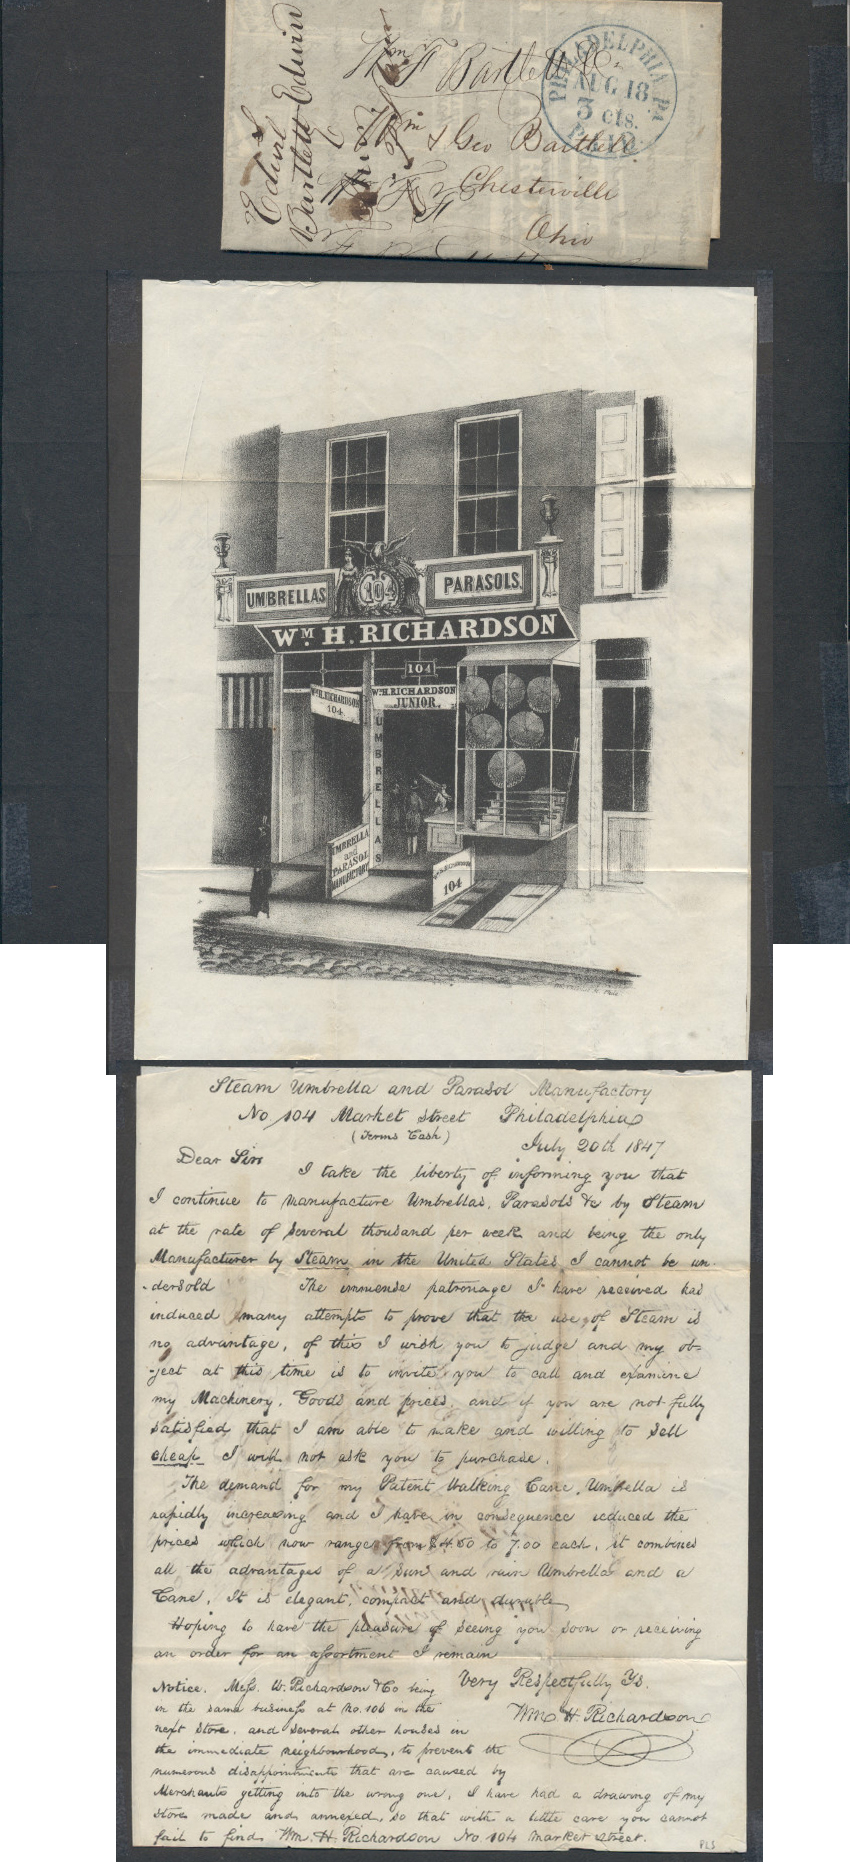 Wm F Bartlett & Co
PHILADELPHIA Pa
AUG 18
3 cts.
PAID
Edwd
Bartlett Edwin
Wm & Geo Bartlett
Chesterville
Ohio
UMBRELLAS
104
PARASOLS.
WM. H. RICHARDSON
104
WM. H. RICHARDSON
104
WM. H. RICHARDSON
JUNIOR.
UMBRELLAS
UMBRELLA
and
PARASOL
MANUFACTORY
WM. H. RICHARDSON
104
Steam Umbrella and Parasol Manufactory
No 104 Market Street Philadelphia
(Terms Cash)
July 20th 1847
Dear Sirs
I take the liberty of informing you that
I continue to manufacture Umbrellas, Parasols &c by Steam
at the rate of several thousand per week and being the only
Manufacturer by Steam in the United States I cannot be un-
-dersold The immense patronage I have received has
induced many attempts to prove that the use of Steam is
no advantage, of this I wish you to judge and my ob-
-ject at this time is to invite you to call and examine
my Machinery, Goods and prices, and if you are not fully
satisfied that I am able to make and willing to sell
cheap I will not ask you to purchase.
The demand for my Patent Walking Cane, Umbrella is
rapidly increasing and I have in consequence reduced the
prices which now range from $4.50 to 7.00 each, it combines
all the advantages of a sun and rain Umbrella and a
Cane, It is elegant, compact and durable,
Hoping to have the pleasure of seeing you soon or receiving
an order for an assortment I remain
Very Respectfully Ys.
Wm. H. Richardson
Notice, Mess. W. Richardson & Co being
in the same business at No. 106 in the
next store, and several other houses in
the immediate neighbourhood, to prevent the
numerous disappointments that are caused by
Merchants getting into the wrong one, I have had a drawing of my
store made and annexed, so that with a little care you cannot
fail to find Wm. H. Richardson No. 104 market street.
PLS